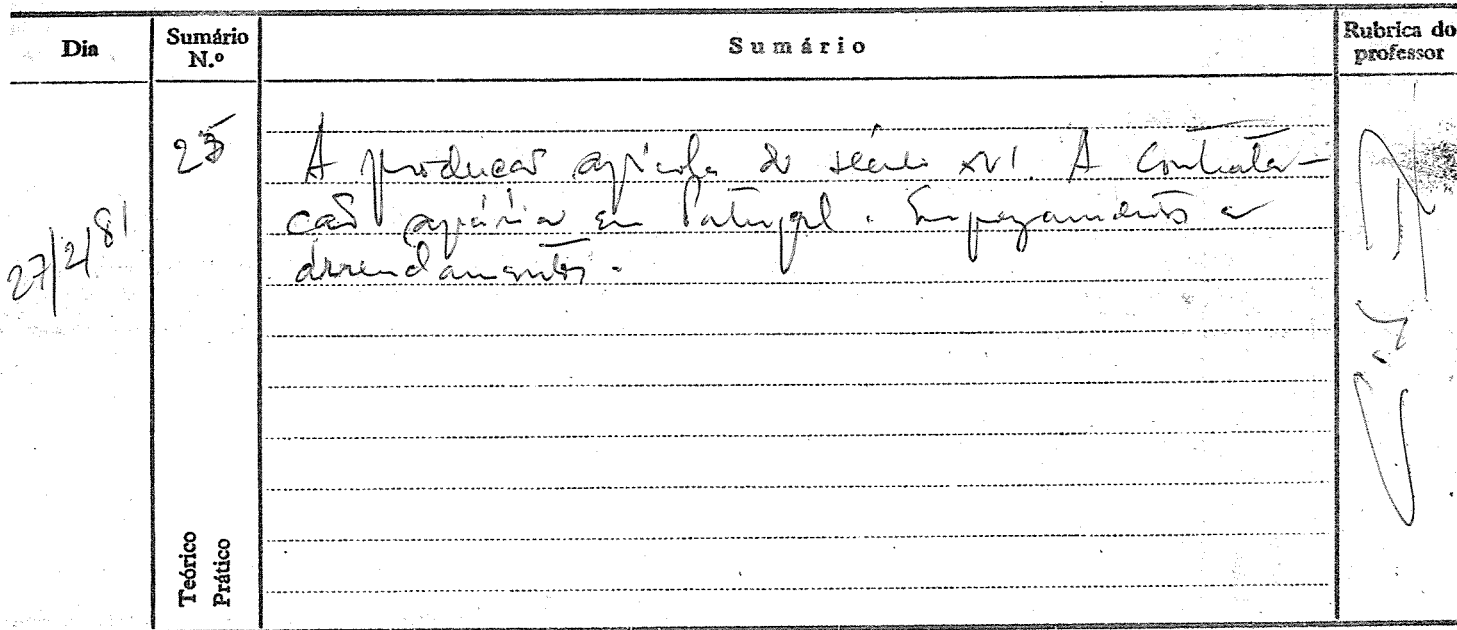 Dia
Sumário N.º
Sumário
Rubrica do professor
27/2/81
25
A produção agrícola do século XVI. A contrata-
ção agrária em Portugal. Emprazamentos e
arrendamentos.
Teórico
Prático